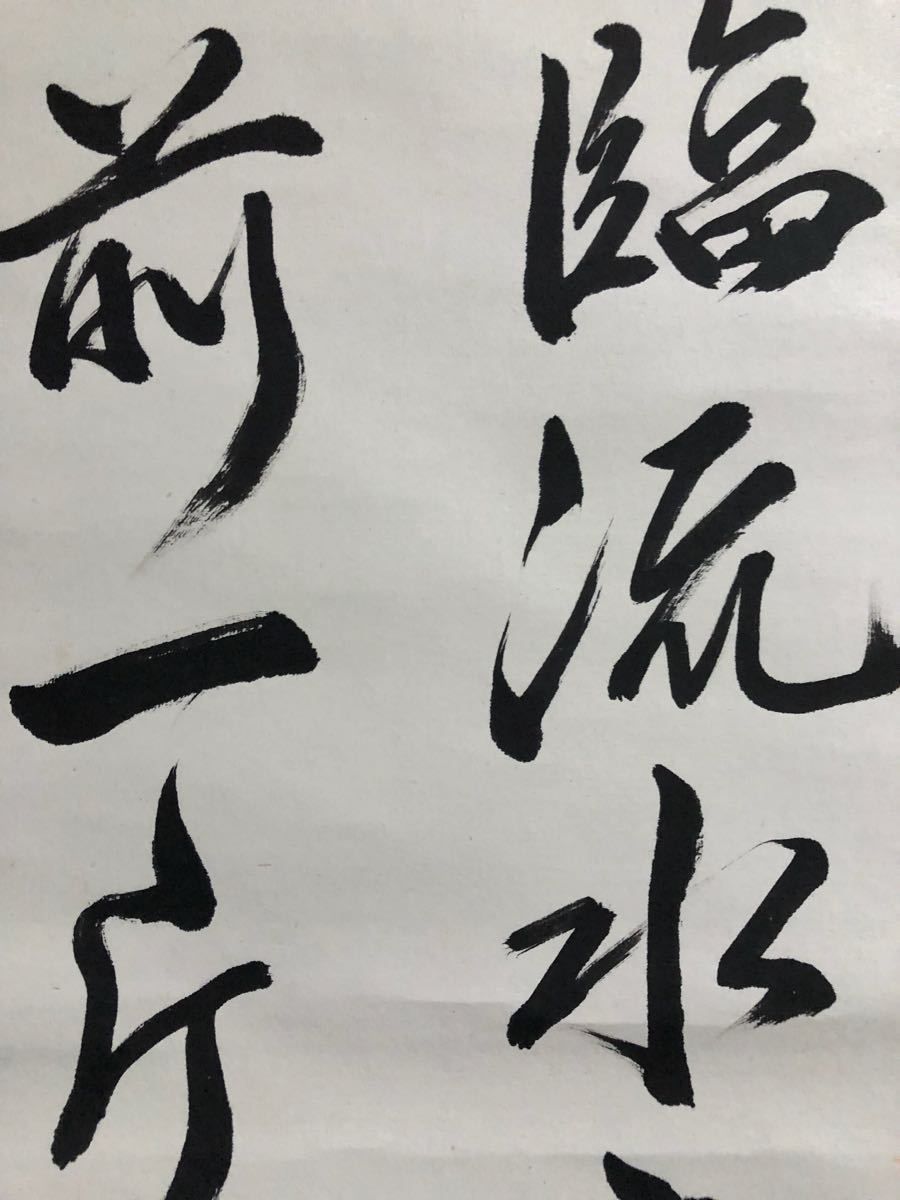 臨流水
前一片